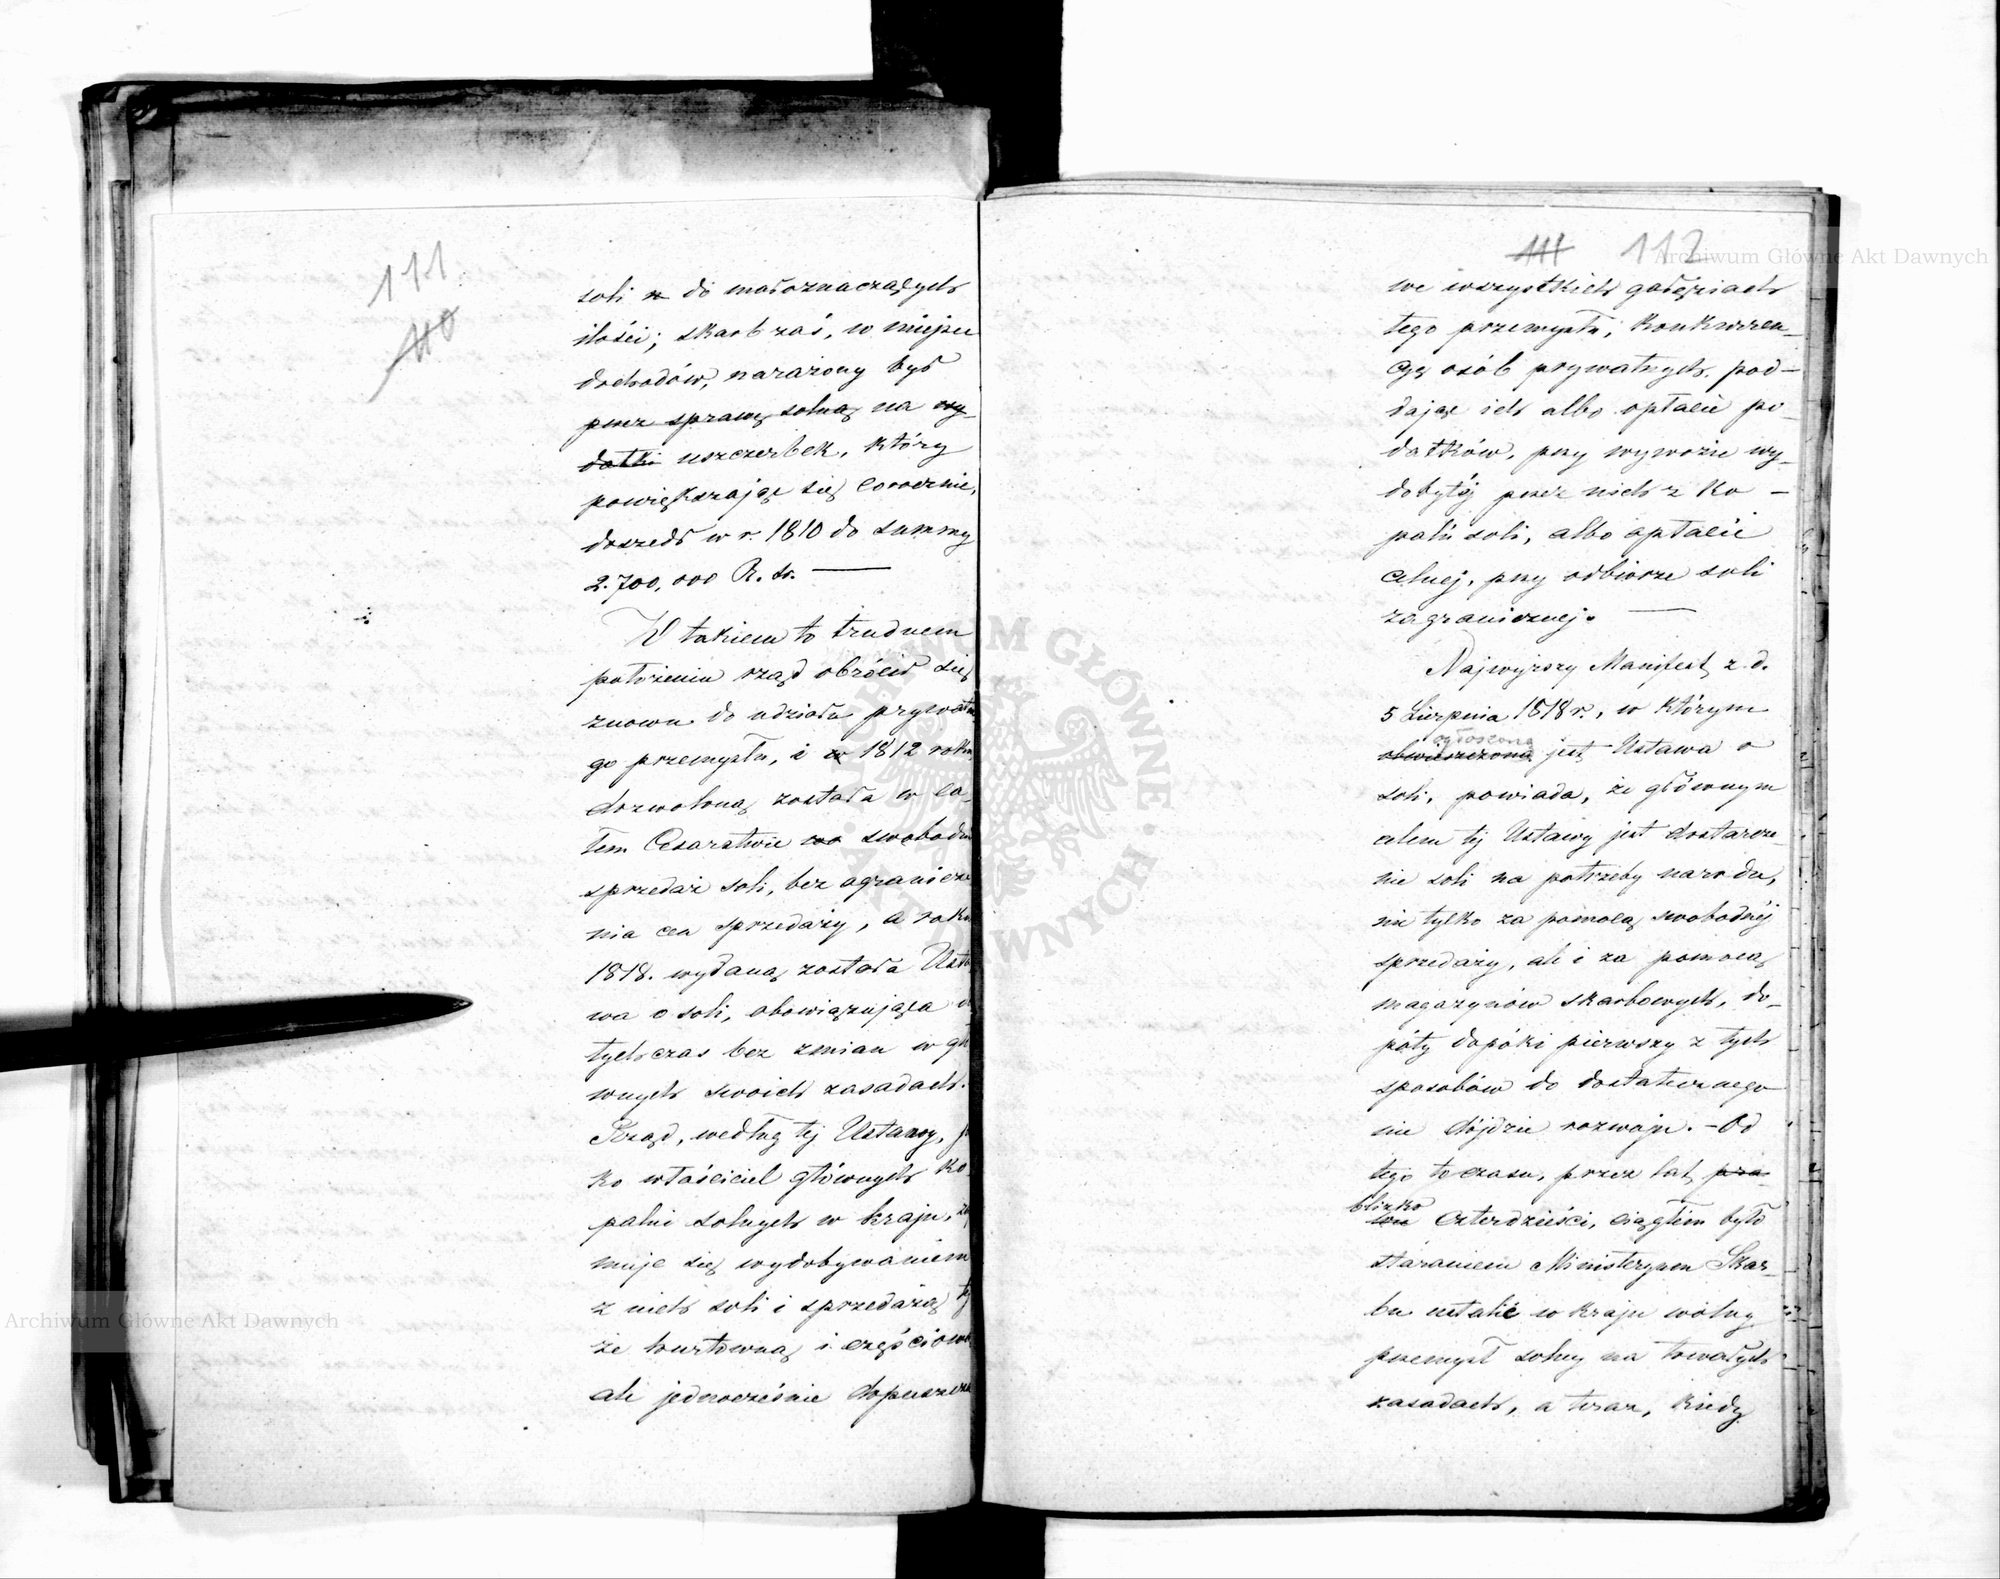 111
110
soli z do małoznaczących
ilości; skarb zaś, w miejscu
dochodów, narażony był
przez sprawę solną na wy-
datki uszczerbek, który
powiększając się corocznie,
doszedł w r. 1810 do summy
2.700,000 R. sr. —
W takiem to trudnem
położeniu rząd obrócił się
znowu do udziału prywatne
go przemysłu, i w 1812 roku
dozwoloną została w ca-
łem Cesarstwie wo swobodna
sprzedaż soli, bez ogranicze
nia cen sprzedaży, a roku
1818. wydaną została Usta
wa o soli, obowiązująca do
tychczas bez zmian w głó
wnych swoich zasadach.
Rząd, według tej Ustawy, ja
ko właściciel głównych ko-
palni solnych w kraju, zaj
muje się wydobywaniem
z nich soli i sprzedażą tej
że hurtowną i częściową
ale jednocześnie dopuszcza
111 112
we wszystkich gałęziach
tego przemysłu, konkuren-
cyę osób prywatnych, pod-
dając ich albo opłacie po-
datków, przy wywozie wy-
dobytéj przez nich z ko-
palń soli, albo opłacie
celnej, przy odbiorze soli
zagranicznej. —
Najwyższy Manifest z d.
5 Sierpnia 1818 r., w którym
ogłoszoną
obwieszczoną jest Ustawa o
soli, powiada, że głównym
celem tej Ustawy jest dostarcze-
nie soli na potrzeby narodu,
nie tylko za pomocą swobodnéj
sprzedaży, ale i za pomocą
magazynów skarbowych, do-
póty dopóki pierwszy z tych
sposobów do dostatecznego
nie dójdzie rozwoju. — Od
tego to czasu, przez lat pra-
blizko
wie czterdzieści, ciągłem było
staraniem Ministeryum Skar-
bu ustalić w kraju wolny
przemysł solny na trwałych
zasadach, a teraz, kiedy